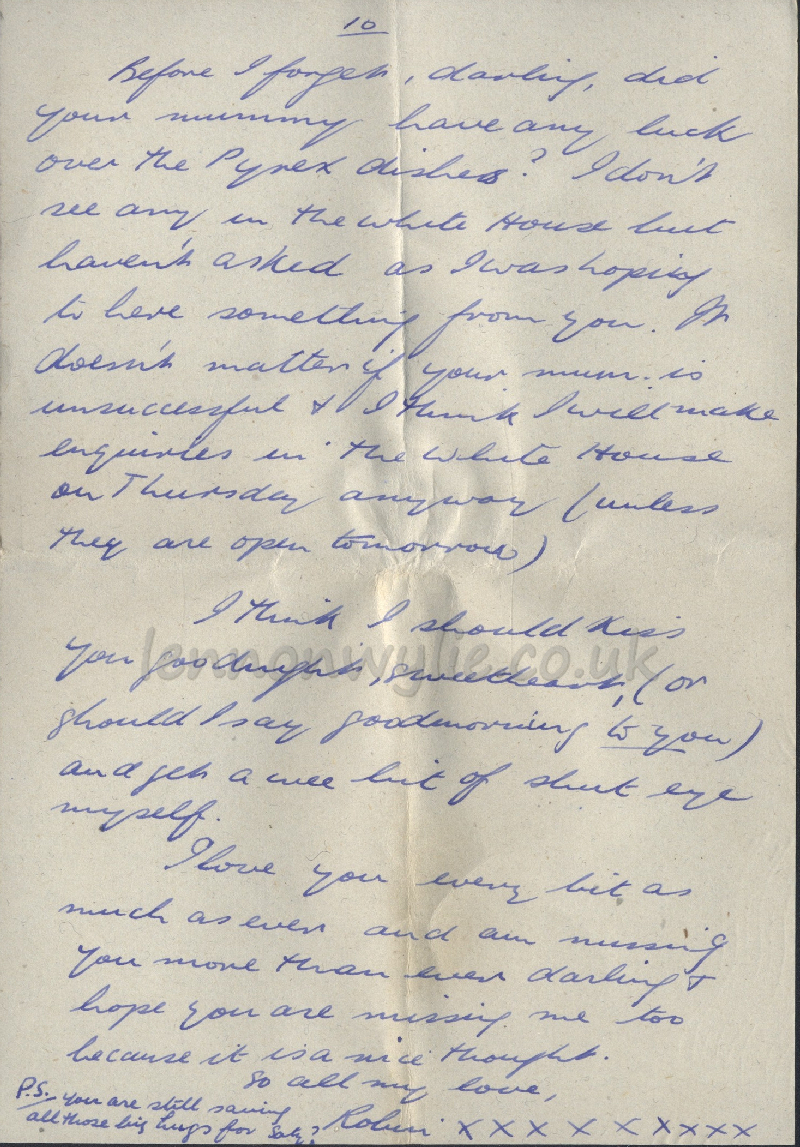 10
Before I forget, darling, did
your mummy have any luck
over the Pyrex dishes? I don't
see any in the White House but
haven't asked as I was hoping
to here something from you. It
doesn't matter if your mum is
unsuccessful & I think I will make
enquiries in the White House
on Thursday anyway (unless
they are open tomorrow)
I think I should kiss
you goodnight, sweetheart, (or
should I say goodmorning to you)
and get a wee bit of shut eye
myself.
I love you every bit as
much as ever and am missing
you more than ever darling &
hope you are missing me too
because it is a nice thought.
So all my love,
Robin x x x x x x x x x
P.S. you are still saving
all those big hugs for Saty?
lennonwylie.co.uk